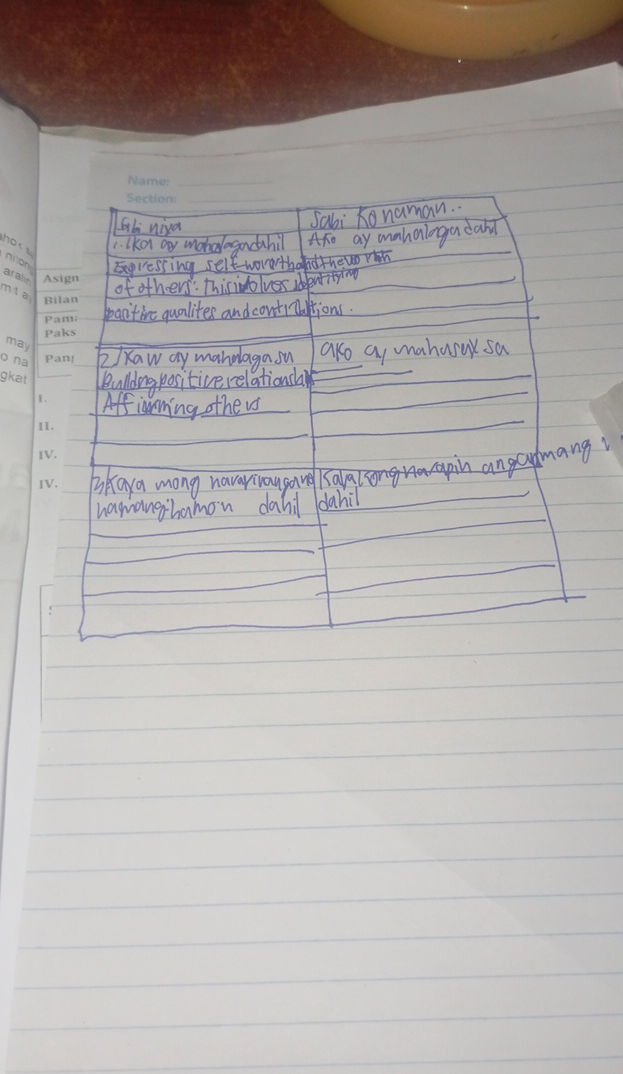 Name:
Section:
Sabi niya
Sabi Ko naman..
1. Ikaw ay mahalaga dahil
Ako ay mahalaga dahil
Expressing self-worth and the worth
of others. this involves identifying
positive qualites and contributions.
2) Kaw ay mahalaga sa
ako ay mahusay sa
Building positive relationship
Affirming others
3) Kaya mong
Kaya kong harapin ang anumang
hamong hamon dahil
dahil
Asign
Bilan
Pam:
Paks
Pang
I.
II.
IV.
IV.
may
o na
gkat